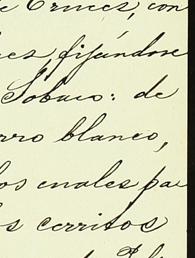 Cruces, con
fijándose
Tobaco: de
rro blanco,
los cuales pa
s cerritos